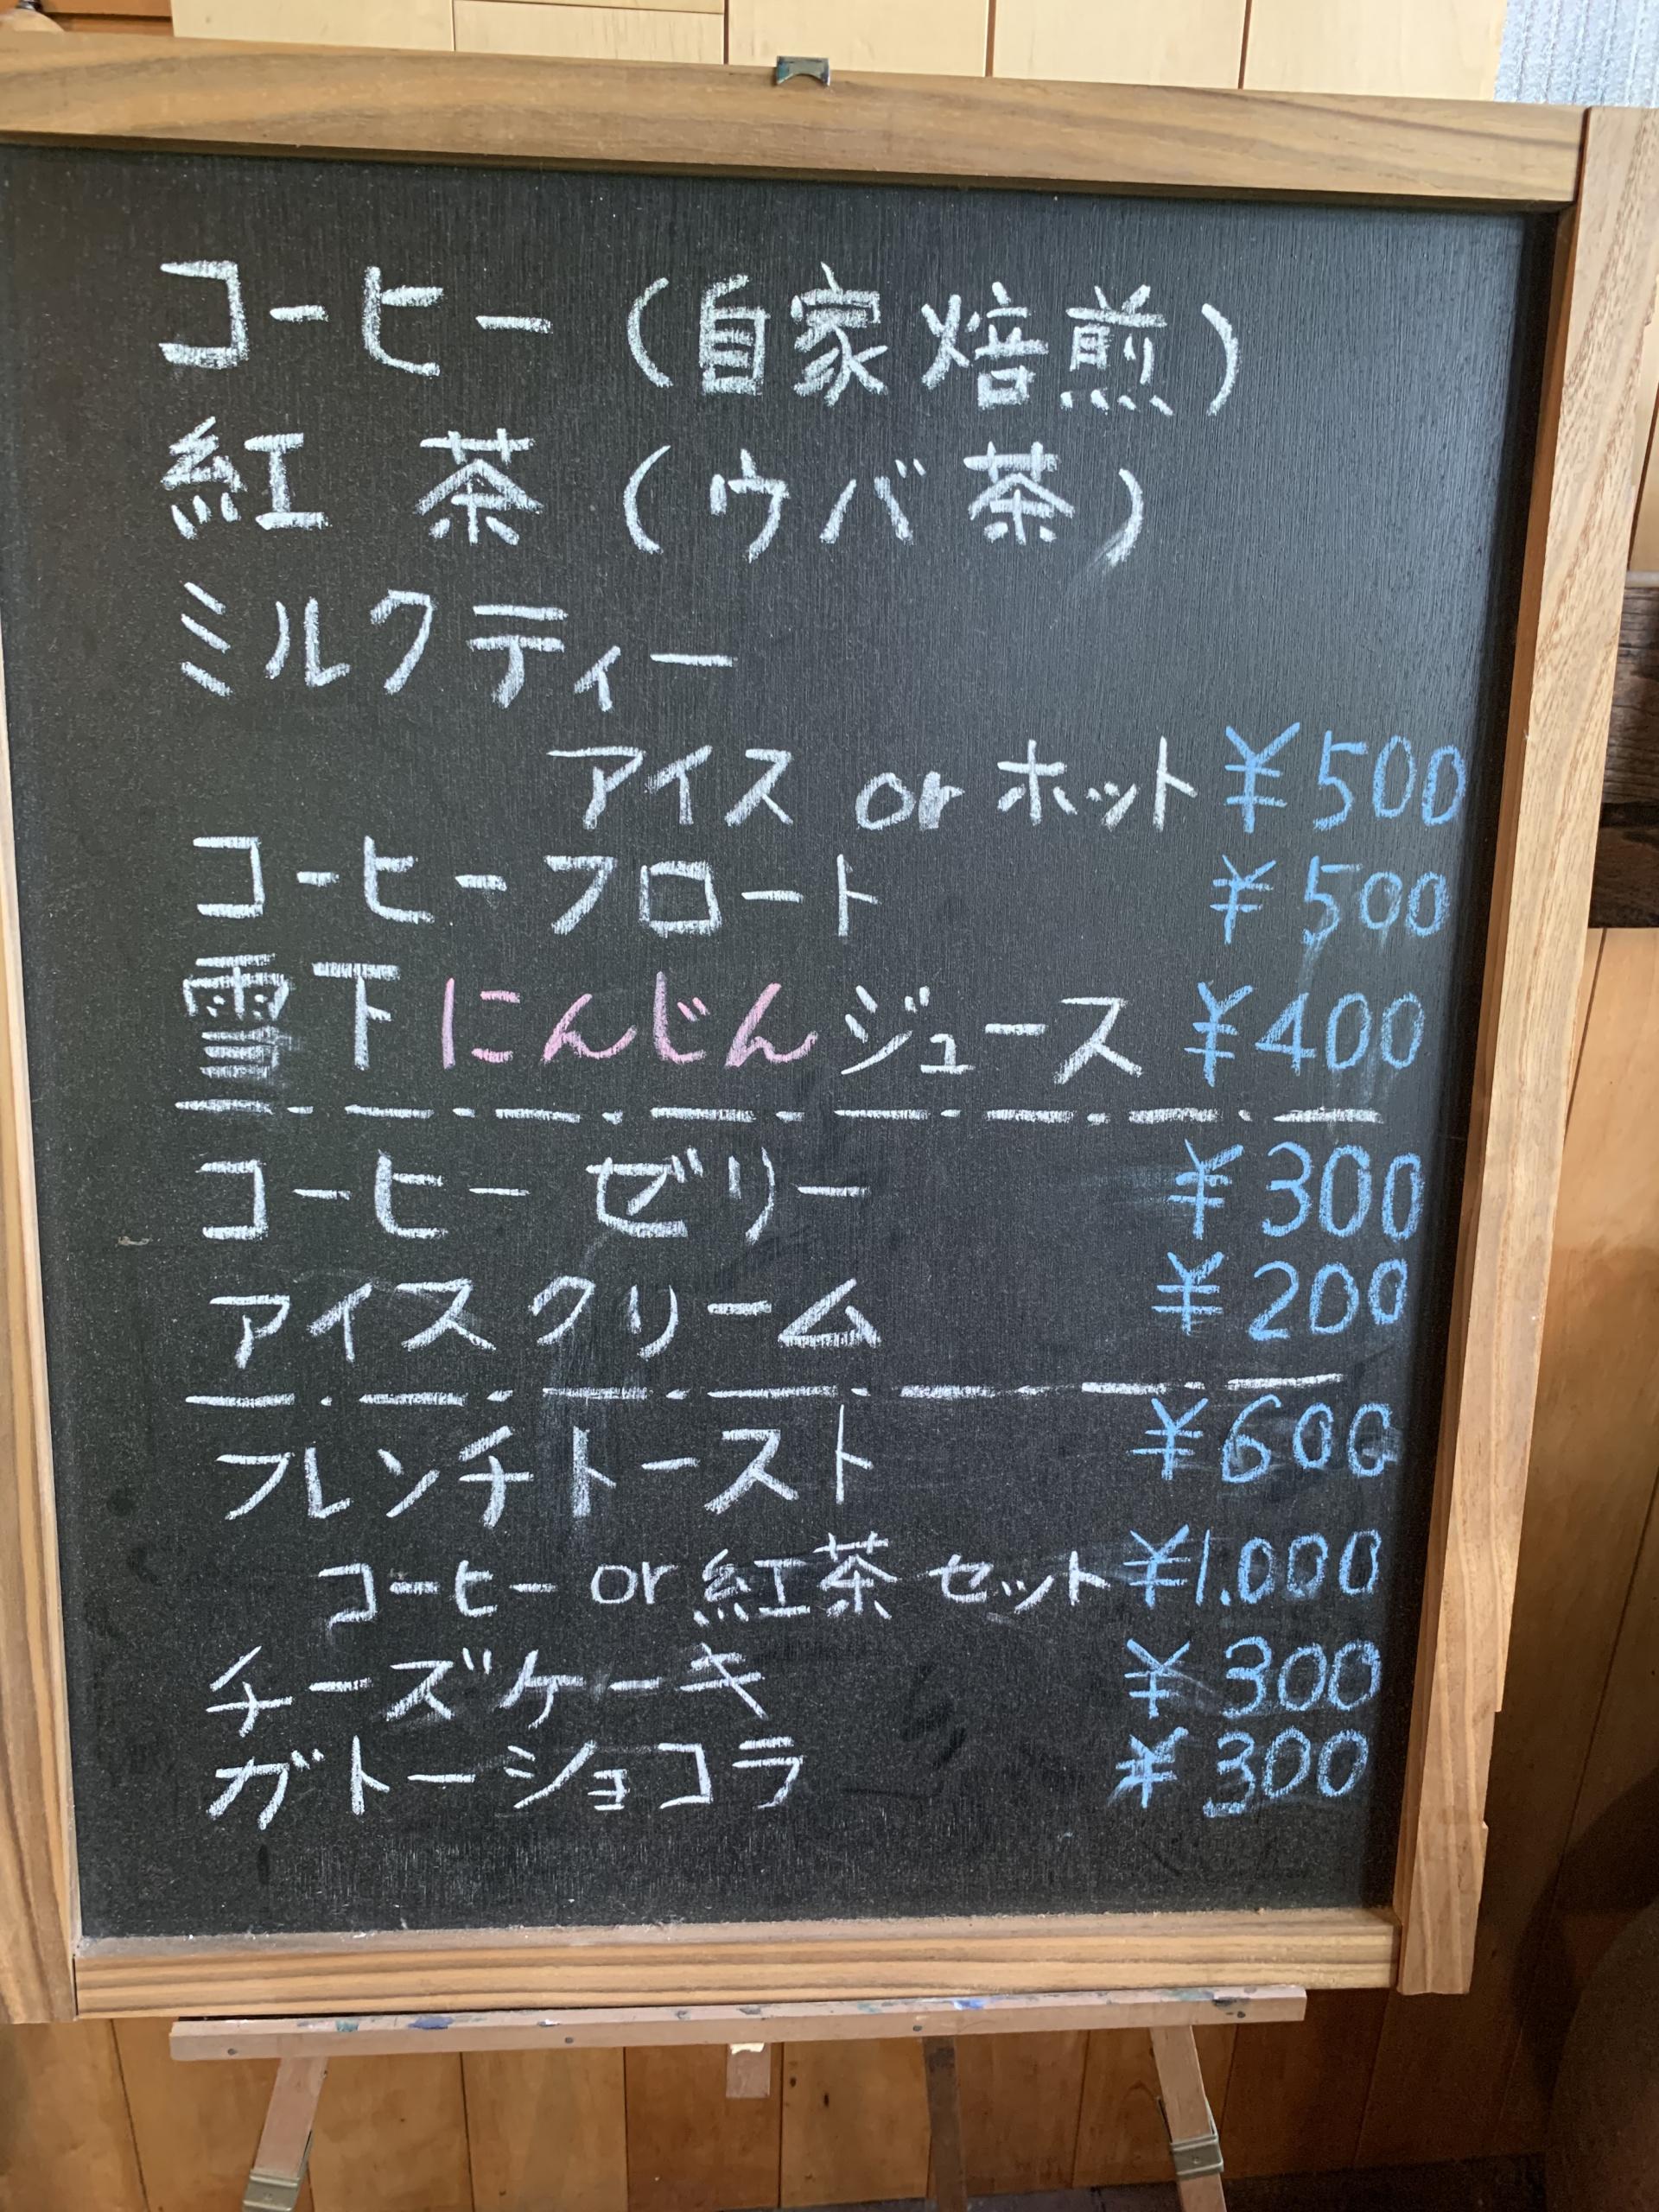 コーヒー(自家焙煎)
紅茶(ウバ茶)
ミルクティー
アイス or ホット ¥500
コーヒーフロート ¥500
雪下にんじんジュース ¥400
コーヒーゼリー ¥300
アイスクリーム ¥200
フレンチトースト ¥600
コーヒー or 紅茶 セット ¥1.000
チーズケーキ ¥300
ガトーショコラ ¥300